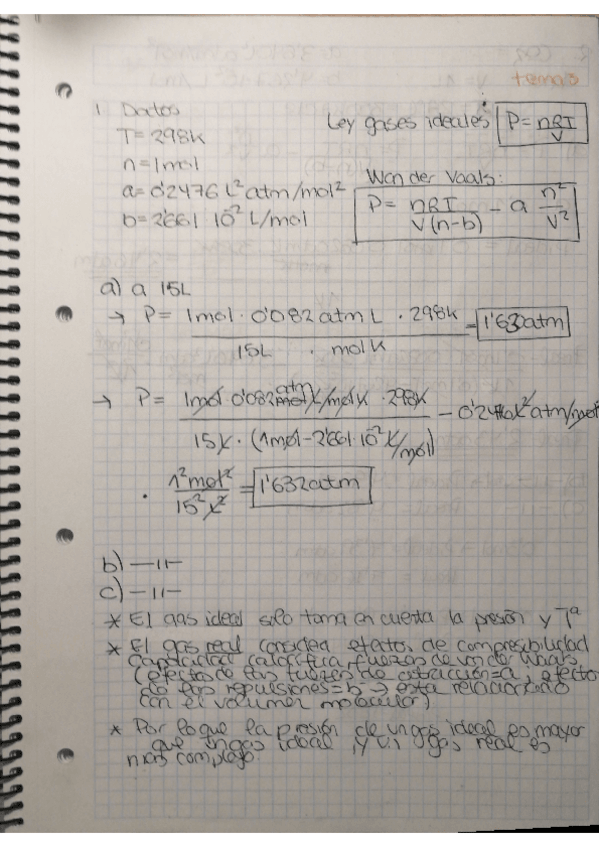 tema 3
1 Datos
Ley gases ideales P = nRT / V
T = 298K
n = 1mol
Van der Vaals:
a = 0'2476 L² atm/mol²
P = nRT / V(n-b) - a n² / V²
b = 2'661 10⁻² L/mol
a) a 15L
→ P = 1mol · 0'082 atm L · 298K / 15L · mol K = 1'630atm
→ P = 1mol · 0'082 atm L/mol K · 298K / 15L · (1mol - 2'661·10⁻² L/mol) - 0'2476 L² atm/mol
· 1² mol² / 15² L² = 1'632atm
b) —11—
c) —11—
* El gas ideal solo toma en cuenta la presión y Tª
* El gas real considea efectos de compresibilidad
capacidad calorífica, fuerzas de van der Waals
(efectos de las fuerzas de atracción=a, efecto
de las repulsiones=b → esta relacionado
con el volumen molecular)
* Por lo que la presión de un gas ideal es mayor
que un gas ideal, y un gas real es
mas complejo.